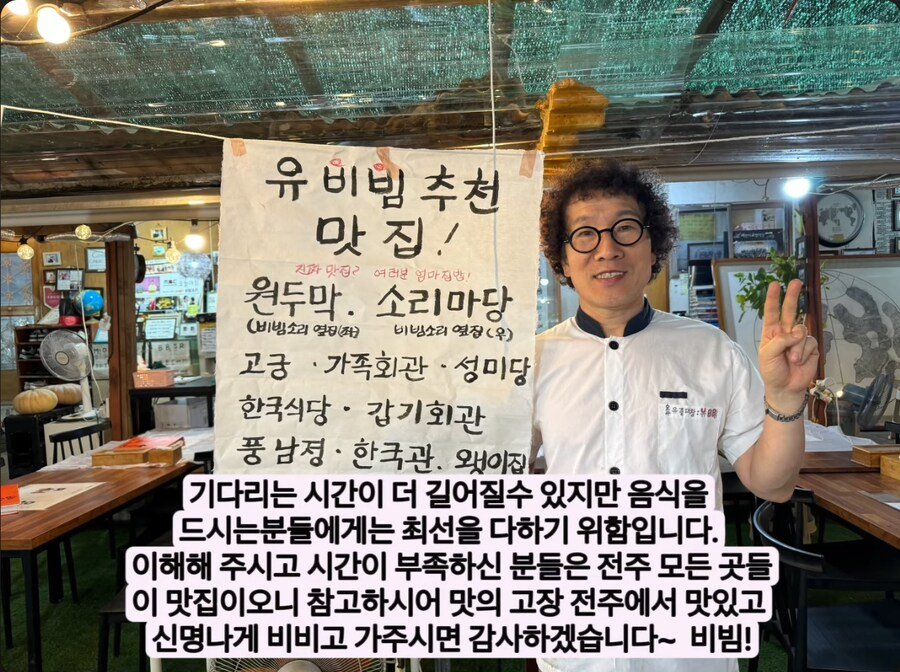 유비빔 추천
맛집!
진짜 맛집? 여러분 엄마집밥!
원두막. 소리마당
(비빔소리 옆집(좌) 비빔소리 옆집(우)
고궁 · 가족회관 · 성미당
한국식당 · 갑기회관
풍남정 · 한국관. 왱이집
기다리는 시간이 더 길어질수 있지만 음식을
드시는분들에게는 최선을 다하기 위함입니다.
이해해 주시고 시간이 부족하신 분들은 전주 모든 곳들
이 맛집이오니 참고하시어 맛의 고장 전주에서 맛있고
신명나게 비비고 가주시면 감사하겠습니다~ 비빔!